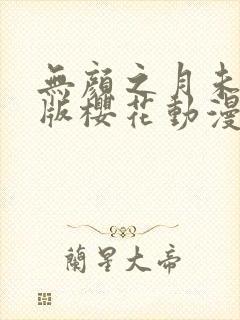 無顏之月未
版櫻花動漫
蘭星大帝